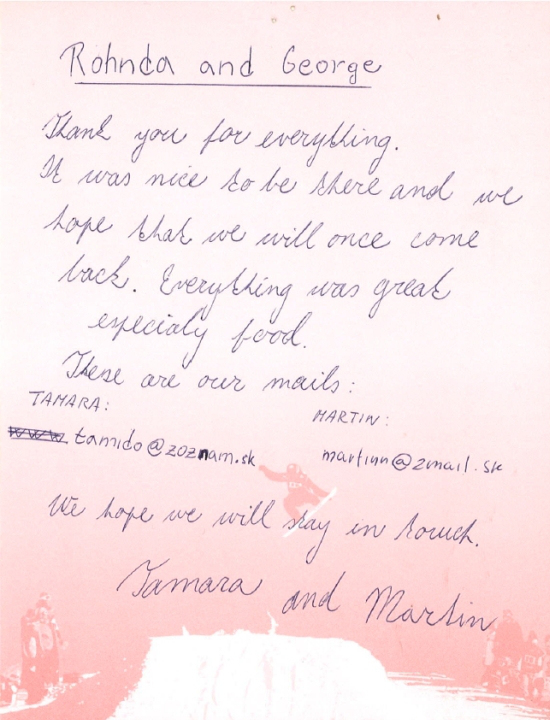 Rohnda and George
Thank you for everything.
It was nice to be there and we
hope that we will once come
back. Everything was great
especialy food.
These are our mails:
TAMARA:
MARTIN:
www tamido@zoznam.sk
martinn@zmail.sk
We hope we will stay in touch.
Tamara and Martin